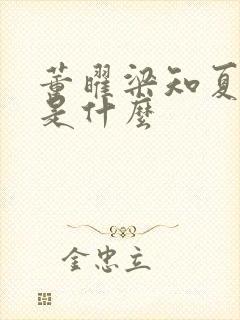 董曜梁知夏
是什麼
金忠立